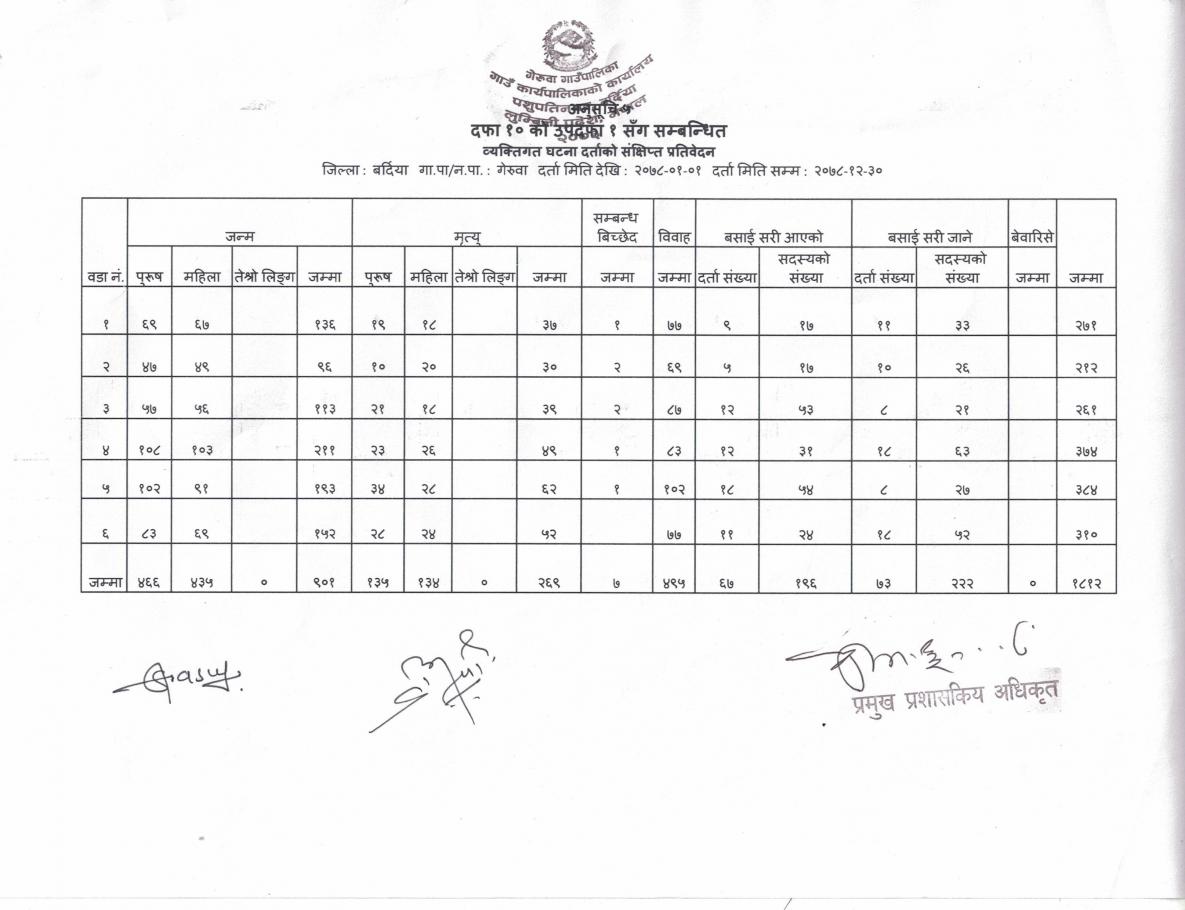 गेरुवा गाउँपालिका
गाउँ कार्यपालिकाको कार्यालय
लुम्बिनी प्रदेश, नेपाल
दफा १० को उपदफा १ सँग सम्बन्धित
व्यक्तिगत घटना दर्ताको संक्षिप्त प्रतिवेदन
जिल्ला : बर्दिया गा.पा/न.पा. : गेरुवा दर्ता मिति देखि : २०७८-०१-०१ दर्ता मिति सम्म : २०७८-१२-३०
वडा नं. जन्म मृत्यु सम्बन्ध बिच्छेद विवाह बसाई सरी आएको बसाई सरी जाने बेवारिसे जम्मा
पुरूष महिला तेश्रो लिङ्ग जम्मा पुरूष महिला तेश्रो लिङ्ग जम्मा जम्मा जम्मा दर्ता संख्या सदस्यको संख्या दर्ता संख्या सदस्यको संख्या जम्मा
१ ६९ ६७ १३६ १९ १८ ३७ १ ७७ ९ १७ ११ ३३ २७१
२ ४७ ४९ ९६ १० २० ३० २ ६९ ५ १७ १० २६ २१२
३ ५७ ५६ ११३ २१ १८ ३९ २ ८७ १२ ५३ ८ २१ २६१
४ १०८ १०३ २११ २३ २६ ४९ १ ८३ १२ ३१ १८ ६३ ३७४
५ १०२ ९१ १९३ ३४ २८ ६२ १ १०२ १८ ५४ ८ २७ ३८४
६ ८३ ६९ १५२ २८ २४ ५२ ७७ ११ २४ १८ ५२ ३१०
जम्मा ४६६ ४३५ ० ९०१ १३५ १३४ ० २६९ ७ ४९५ ६७ १९६ ७३ २२२ ० १८१२
प्रमुख प्रशासकिय अधिकृत